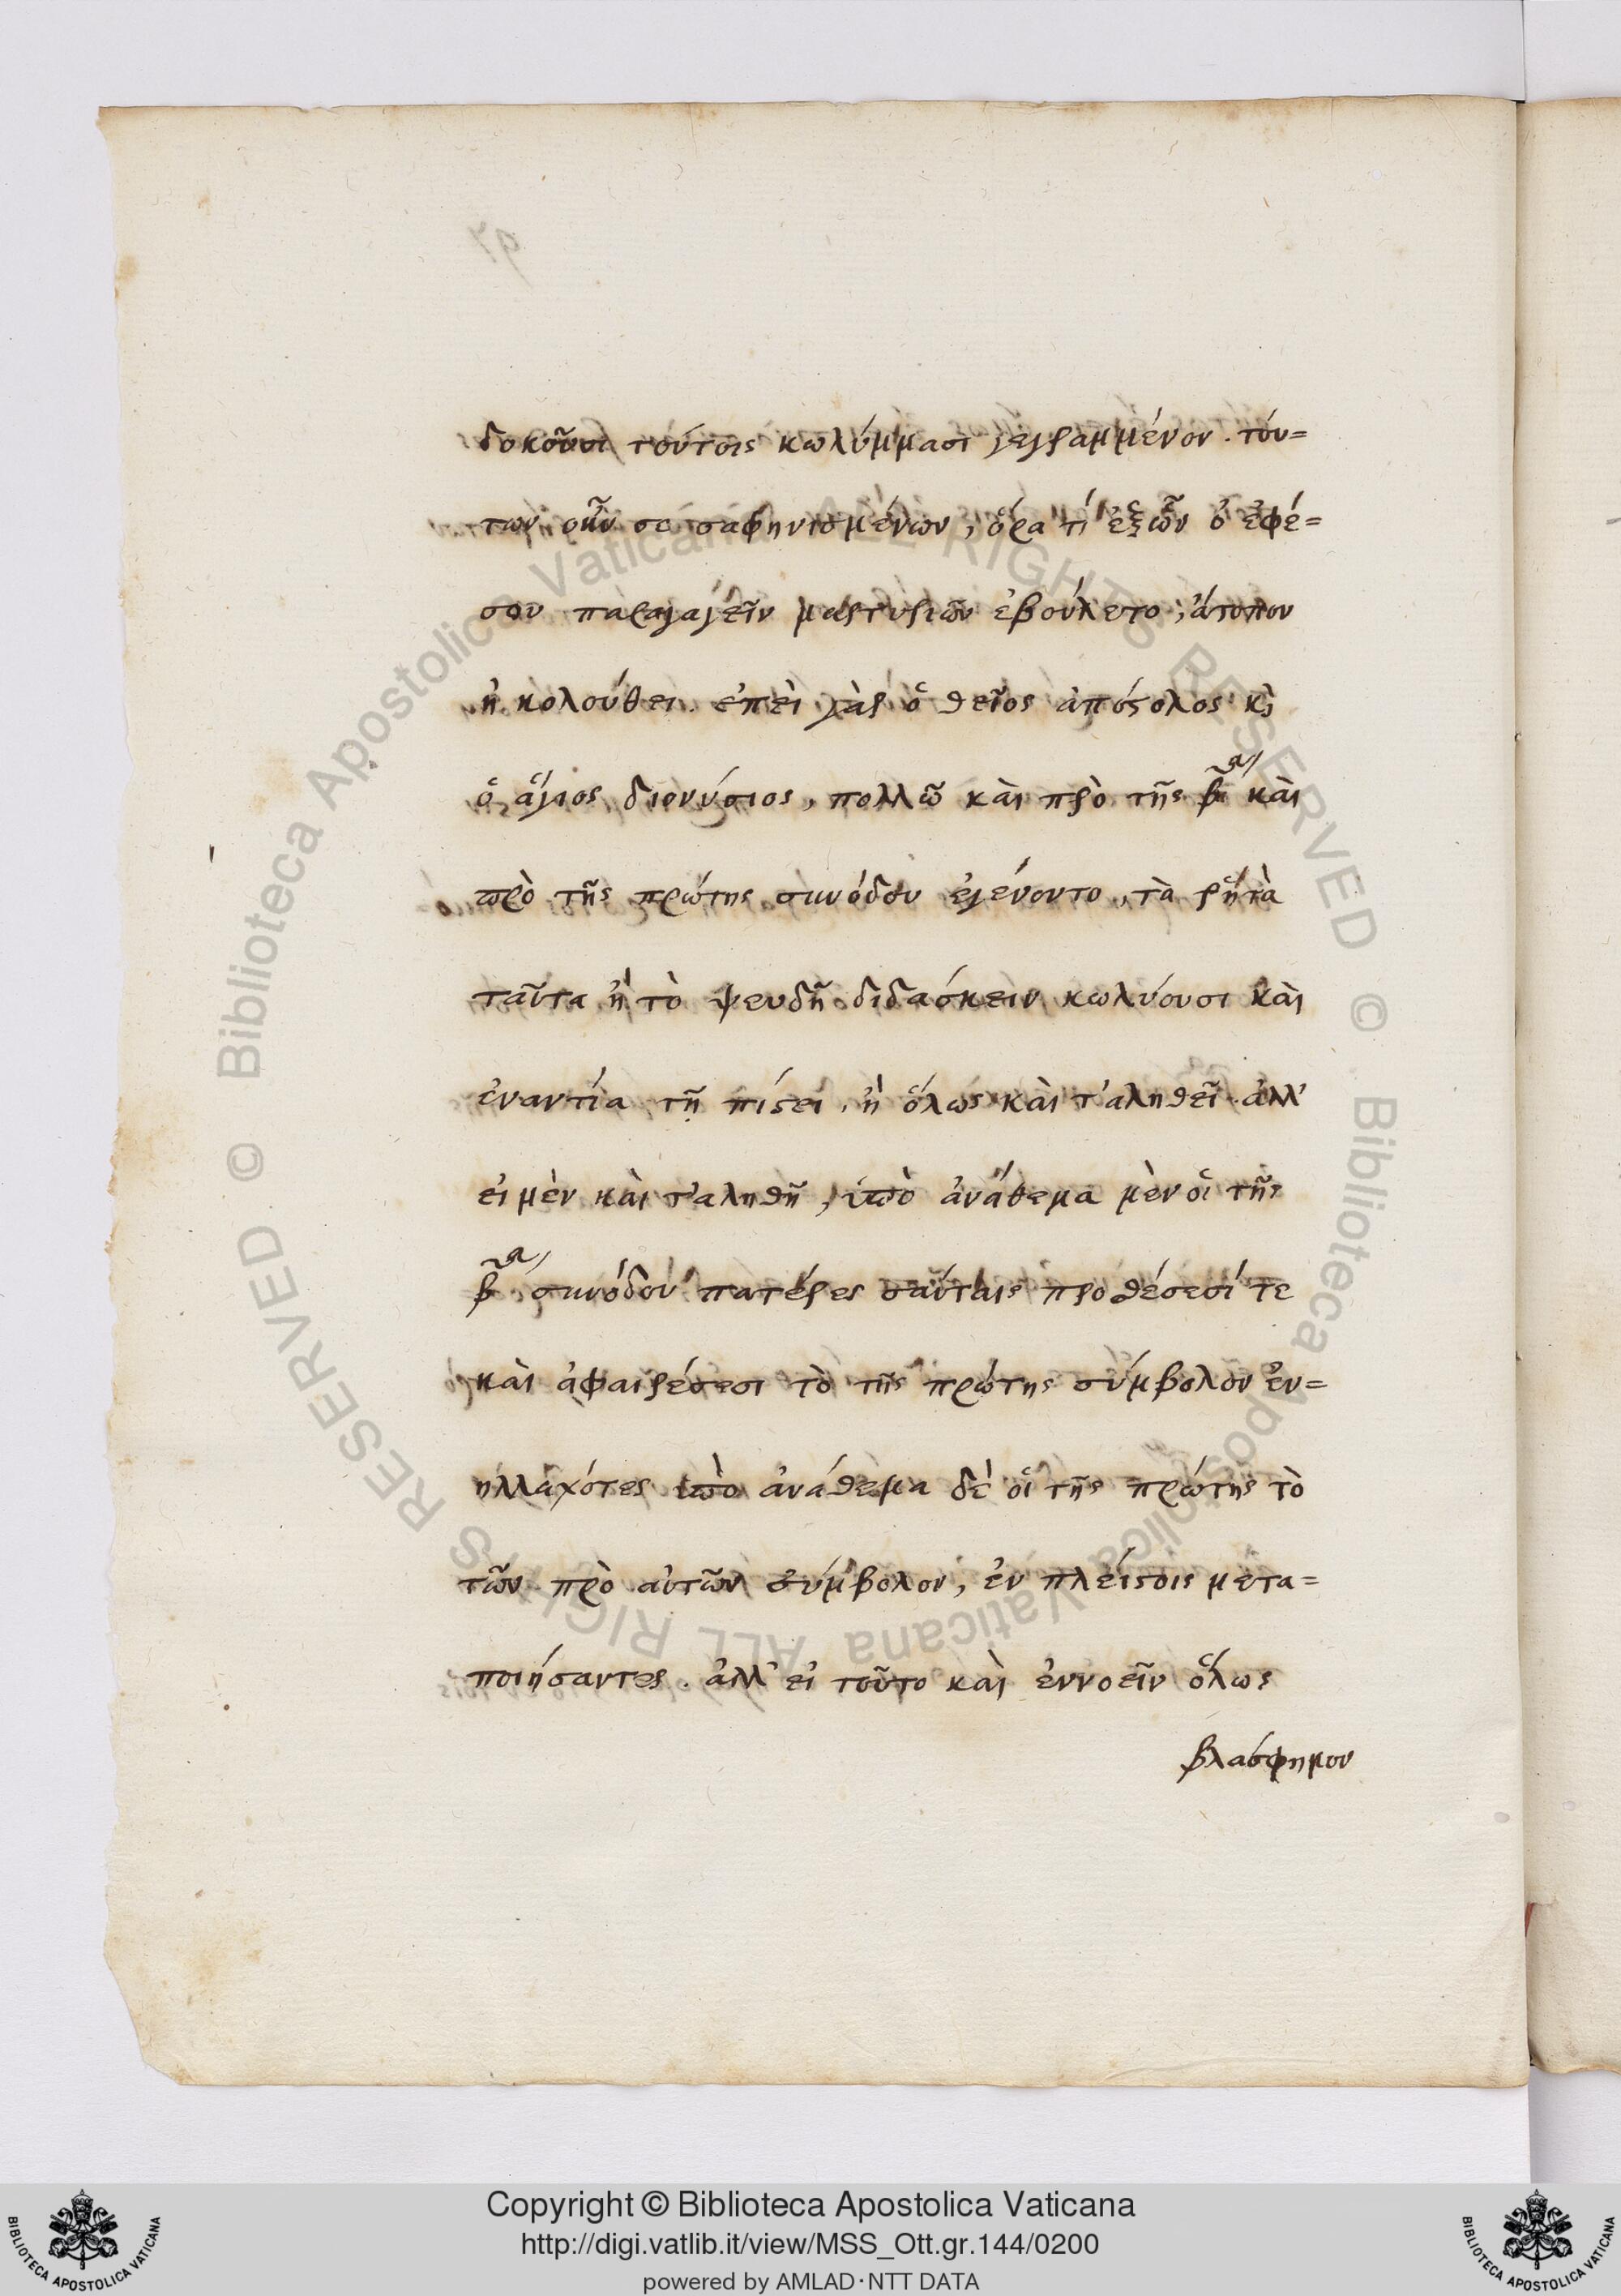 δοκοῦσι τούτοις κωλύμμασι γεγραμμένον. τού=
των οὖν σε σαφηνισμένων, ὅρα τί ἐξ ὧν ὁ ἐφέ=
σου παραγαγεῖν μαρτυριῶν ἐβούλετο, ἄτοπον
ἠκολούθει. ἐπεὶ γὰρ ὁ θεῖος ἀπόστολος κὶ
ὁ ἅγιος διονύσιος, πολλῶ καὶ πρὸ τῆς β᾽ας καὶ
πρὸ τῆς πρώτης συνόδου ἐγένοντο, τὰ ῥητὰ
ταῦτα ἢ τὸ ψευδῆ διδάσκειν κωλύουσι καὶ
ἐναντία τῇ πίστει, ἢ ὅλως καὶ τ'αληθεῖ. ἀλλ'
εἰ μὲν καὶ τ'αληθῆ, ὑπὸ ἀνάθεμα μὲν οἱ τῆς
β᾽ας συνόδου πατέρες ταύταις προθέσεσί τε
καὶ ἀφαιρέσεσι τὸ τῆς πρώτης σύμβολον ἐν=
ηλλαχότες ὑπὸ ἀνάθεμα δὲ οἱ τῆς πρώτης τὸ
τῶν πρὸ αὐτῶν σύμβολον, ἐν πλείστοις μετα=
ποιήσαντες. ἀλλ' εἰ τοῦτο καὶ ἐννοεῖν ὅλως
βλάσφημον
Copyright © Biblioteca Apostolica Vaticana
http://digi.vatlib.it/view/MSS_Ott.gr.144/0200
powered by AMLAD·NTT DATA
BIBLIOTECA APOSTOLICA VATICANA
BIBLIOTECA APOSTOLICA VATICANA
© Biblioteca Apostolica Vaticana ALL RIGHTS RESERVED
© Biblioteca Apostolica Vaticana ALL RIGHTS RESERVED